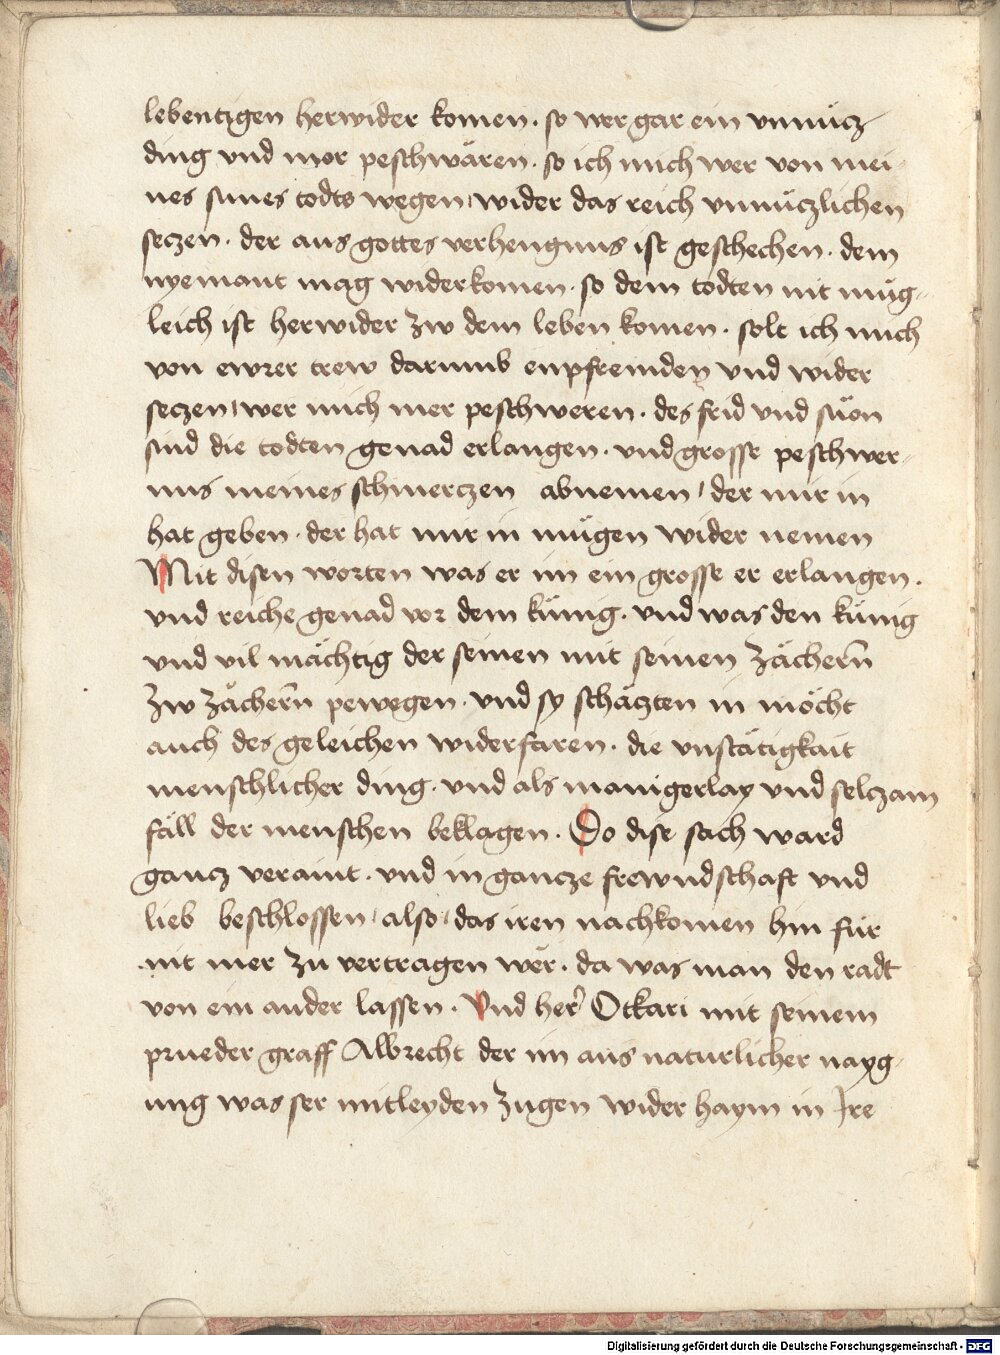 lebentzigen herwider komen · so wer gar ein vnnücz
ding vnd mer peschwären · so ich mich wer von mei-
nes sunes todts wegen wider das reich vnnüczlichen
seczen · der aus gottes verhengnus ist geschechen · dem
nyemant mag widerkomen · so dem todten nit müg-
leich ist herwider zw dem leben komen · solt ich mich
von ewrer trew darumb enpfremden vnd wider
seczen wer mich mer peschweren · des frid vnd süon
sind die todten genad erlangen · vnd grosse peschwer-
nus meines schmerczen abnemen der mir in
hat geben · der hat mir in mügen wider nemen
Mit disen worten was er im ein grosse er erlangen ·
vnd reiche genad vor dem künig · vnd was den künig
vnd vil mächtig der seinen mit seinen zächern̄
zw zächern̄ pewegen · vnd sy schäczten in möcht
auch des geleichen widerfaren · die vnstätigkait
menschlicher ding · vnd als manigerlay vnd selczam
fäll der menschen beklagen · Do dise sach ward
gancz veraint · vnd in gancze frewndschaft vnd
lieb beschlossen also das iren nachkomen hin für
nit mer zu vertragen wer · da was man den radt
von ein ander lassen · Vnd her Otkari mit seinem
prueder graff Albrecht der im aus naturlicher nayg-
ung was ser mitleyden zugen wider haym in Ire
Digitalisierung gefördert durch die Deutsche Forschungsgemeinschaft - DFG